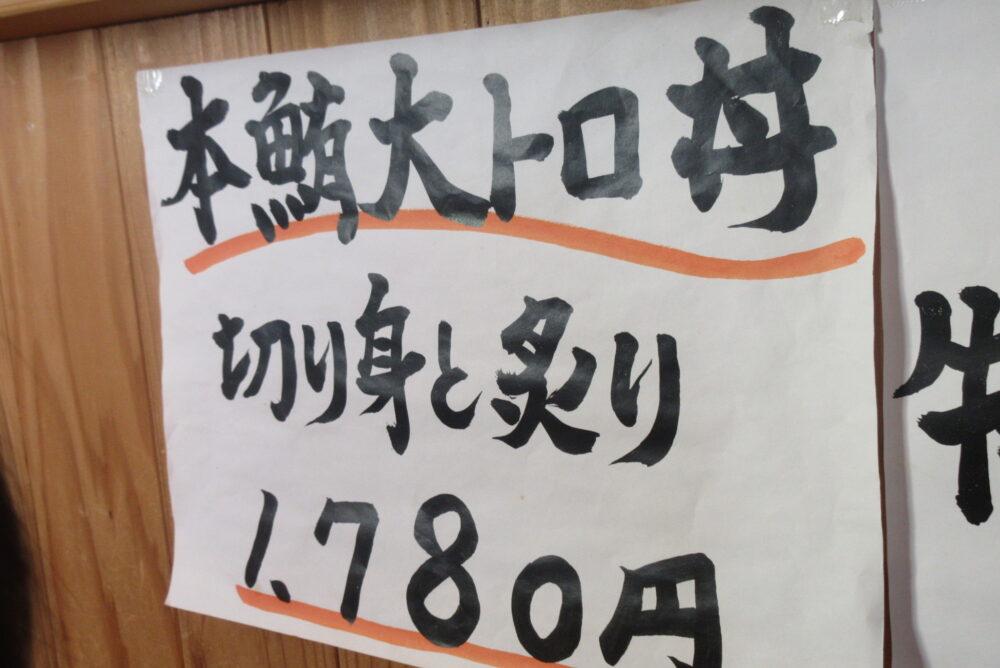 本鮪大トロ丼
切り身と炙り
1,780円